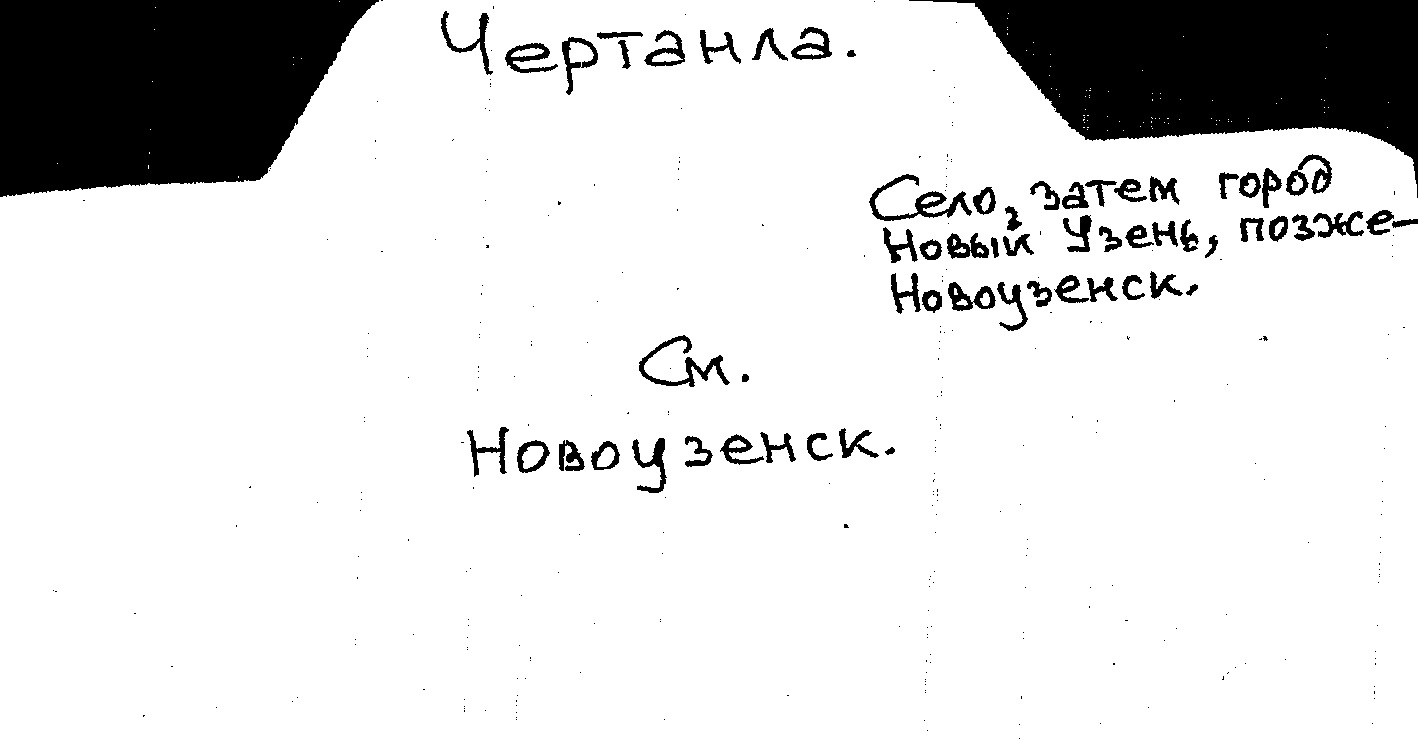 Чертанла.
Село, затем город
Новый Узень, позже-
Новоузенск.
См.
Новоузенск.